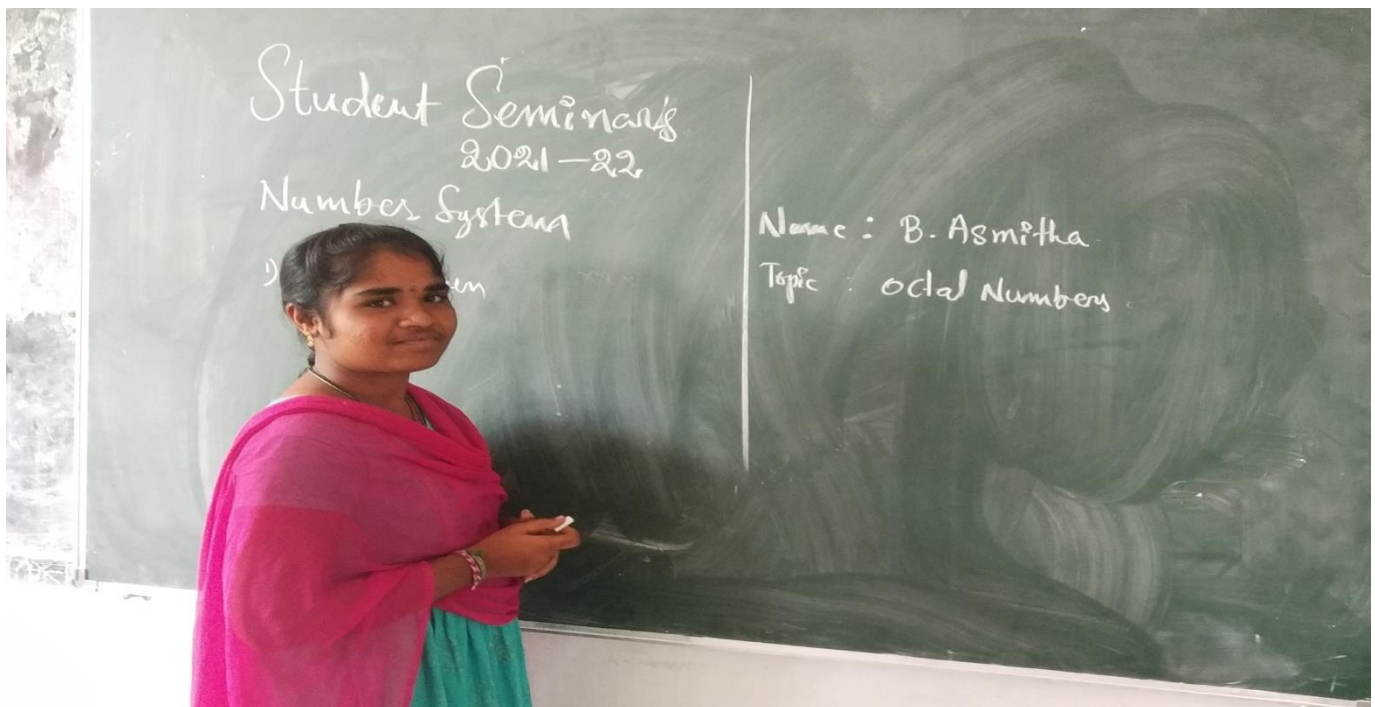 Student Seminars
2021-22
Number System
1)
Name : B. Asmitha
Topic : Octal Numbers